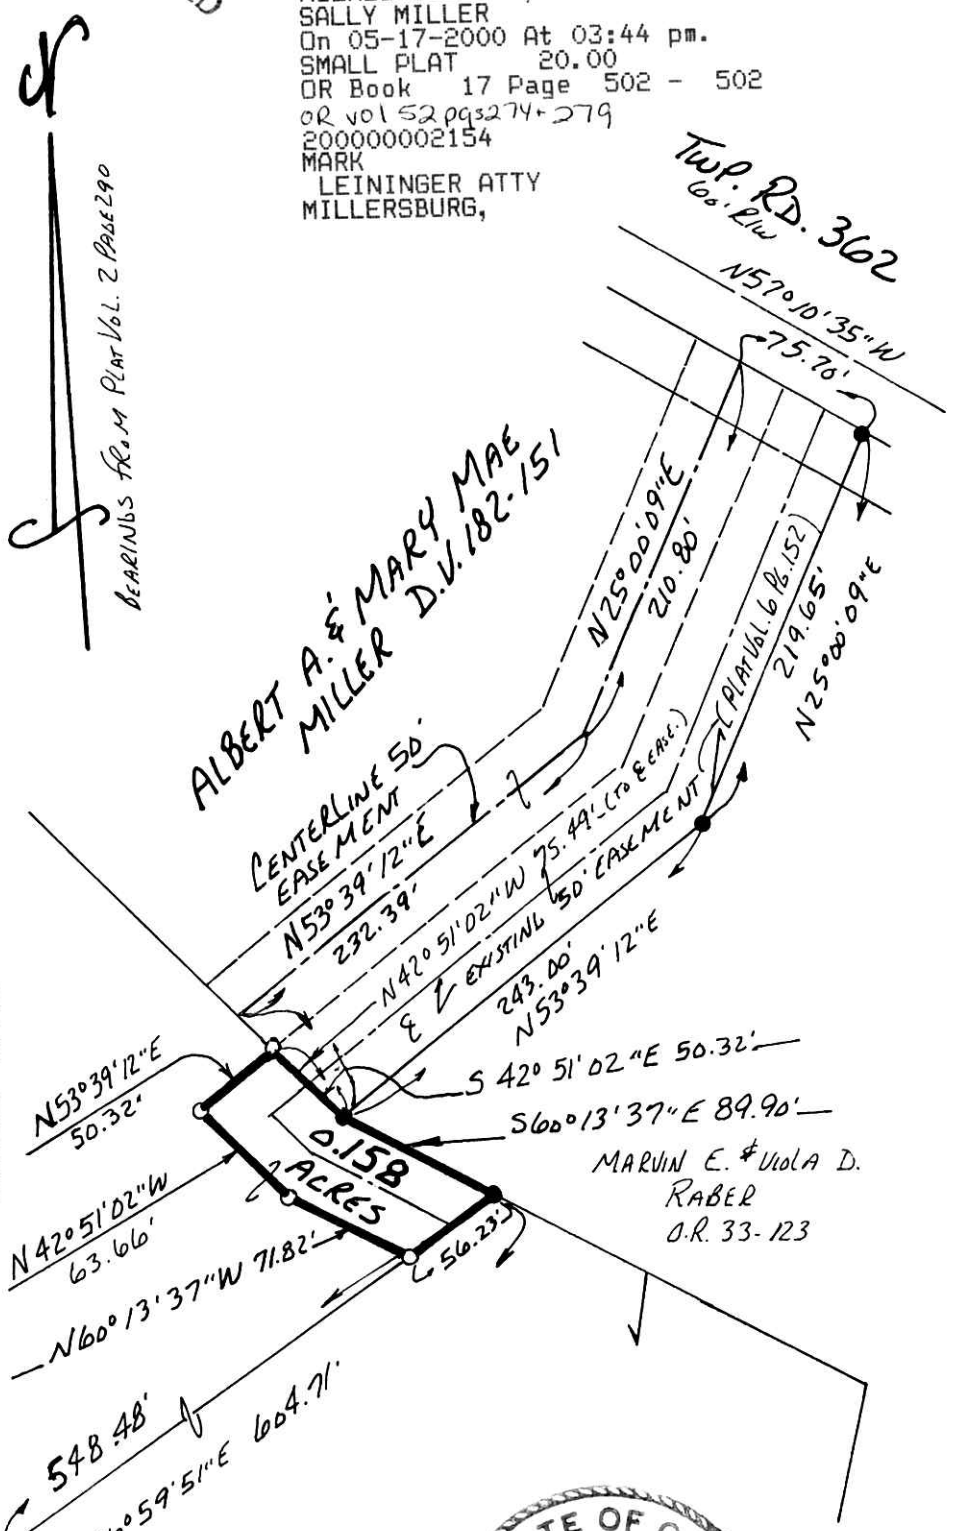 SALLY MILLER
On 05-17-2000 At 03:44 pm.
SMALL PLAT 20.00
OR Book 17 Page 502 - 502
OR Vol 52 pgs 274+279
200000002154
MARK
LEININGER ATTY
MILLERSBURG,
N
BEARINGS FROM PLAT VOL. 2 PAGE 290
TWP. RD. 362
60' R/W
N57°10'35"W
75.70'
ALBERT A. & MARY MAE
MILLER D.V. 182-151
N25°00'09"E
210.80'
(PLAT VOL. 6 PG. 152)
219.65'
N25°00'09"E
CENTERLINE 50'
EASEMENT
N53°39'12"E
232.39'
N42°51'02"W 75.49' (TO ℄ EASE.)
℄ EXISTING 50' EASEMENT
243.00'
N53°39'12"E
N53°39'12"E
50.32'
S 42° 51' 02"E 50.32'
S60°13'37"E 89.90'
0.158
ACRES
MARVIN E. & VIOLA D.
RABER
O.R. 33-123
N42°51'02"W
63.66'
N60°13'37"W 71.82'
56.23'
548.48'
°59'51"E 604.71'
TE OF